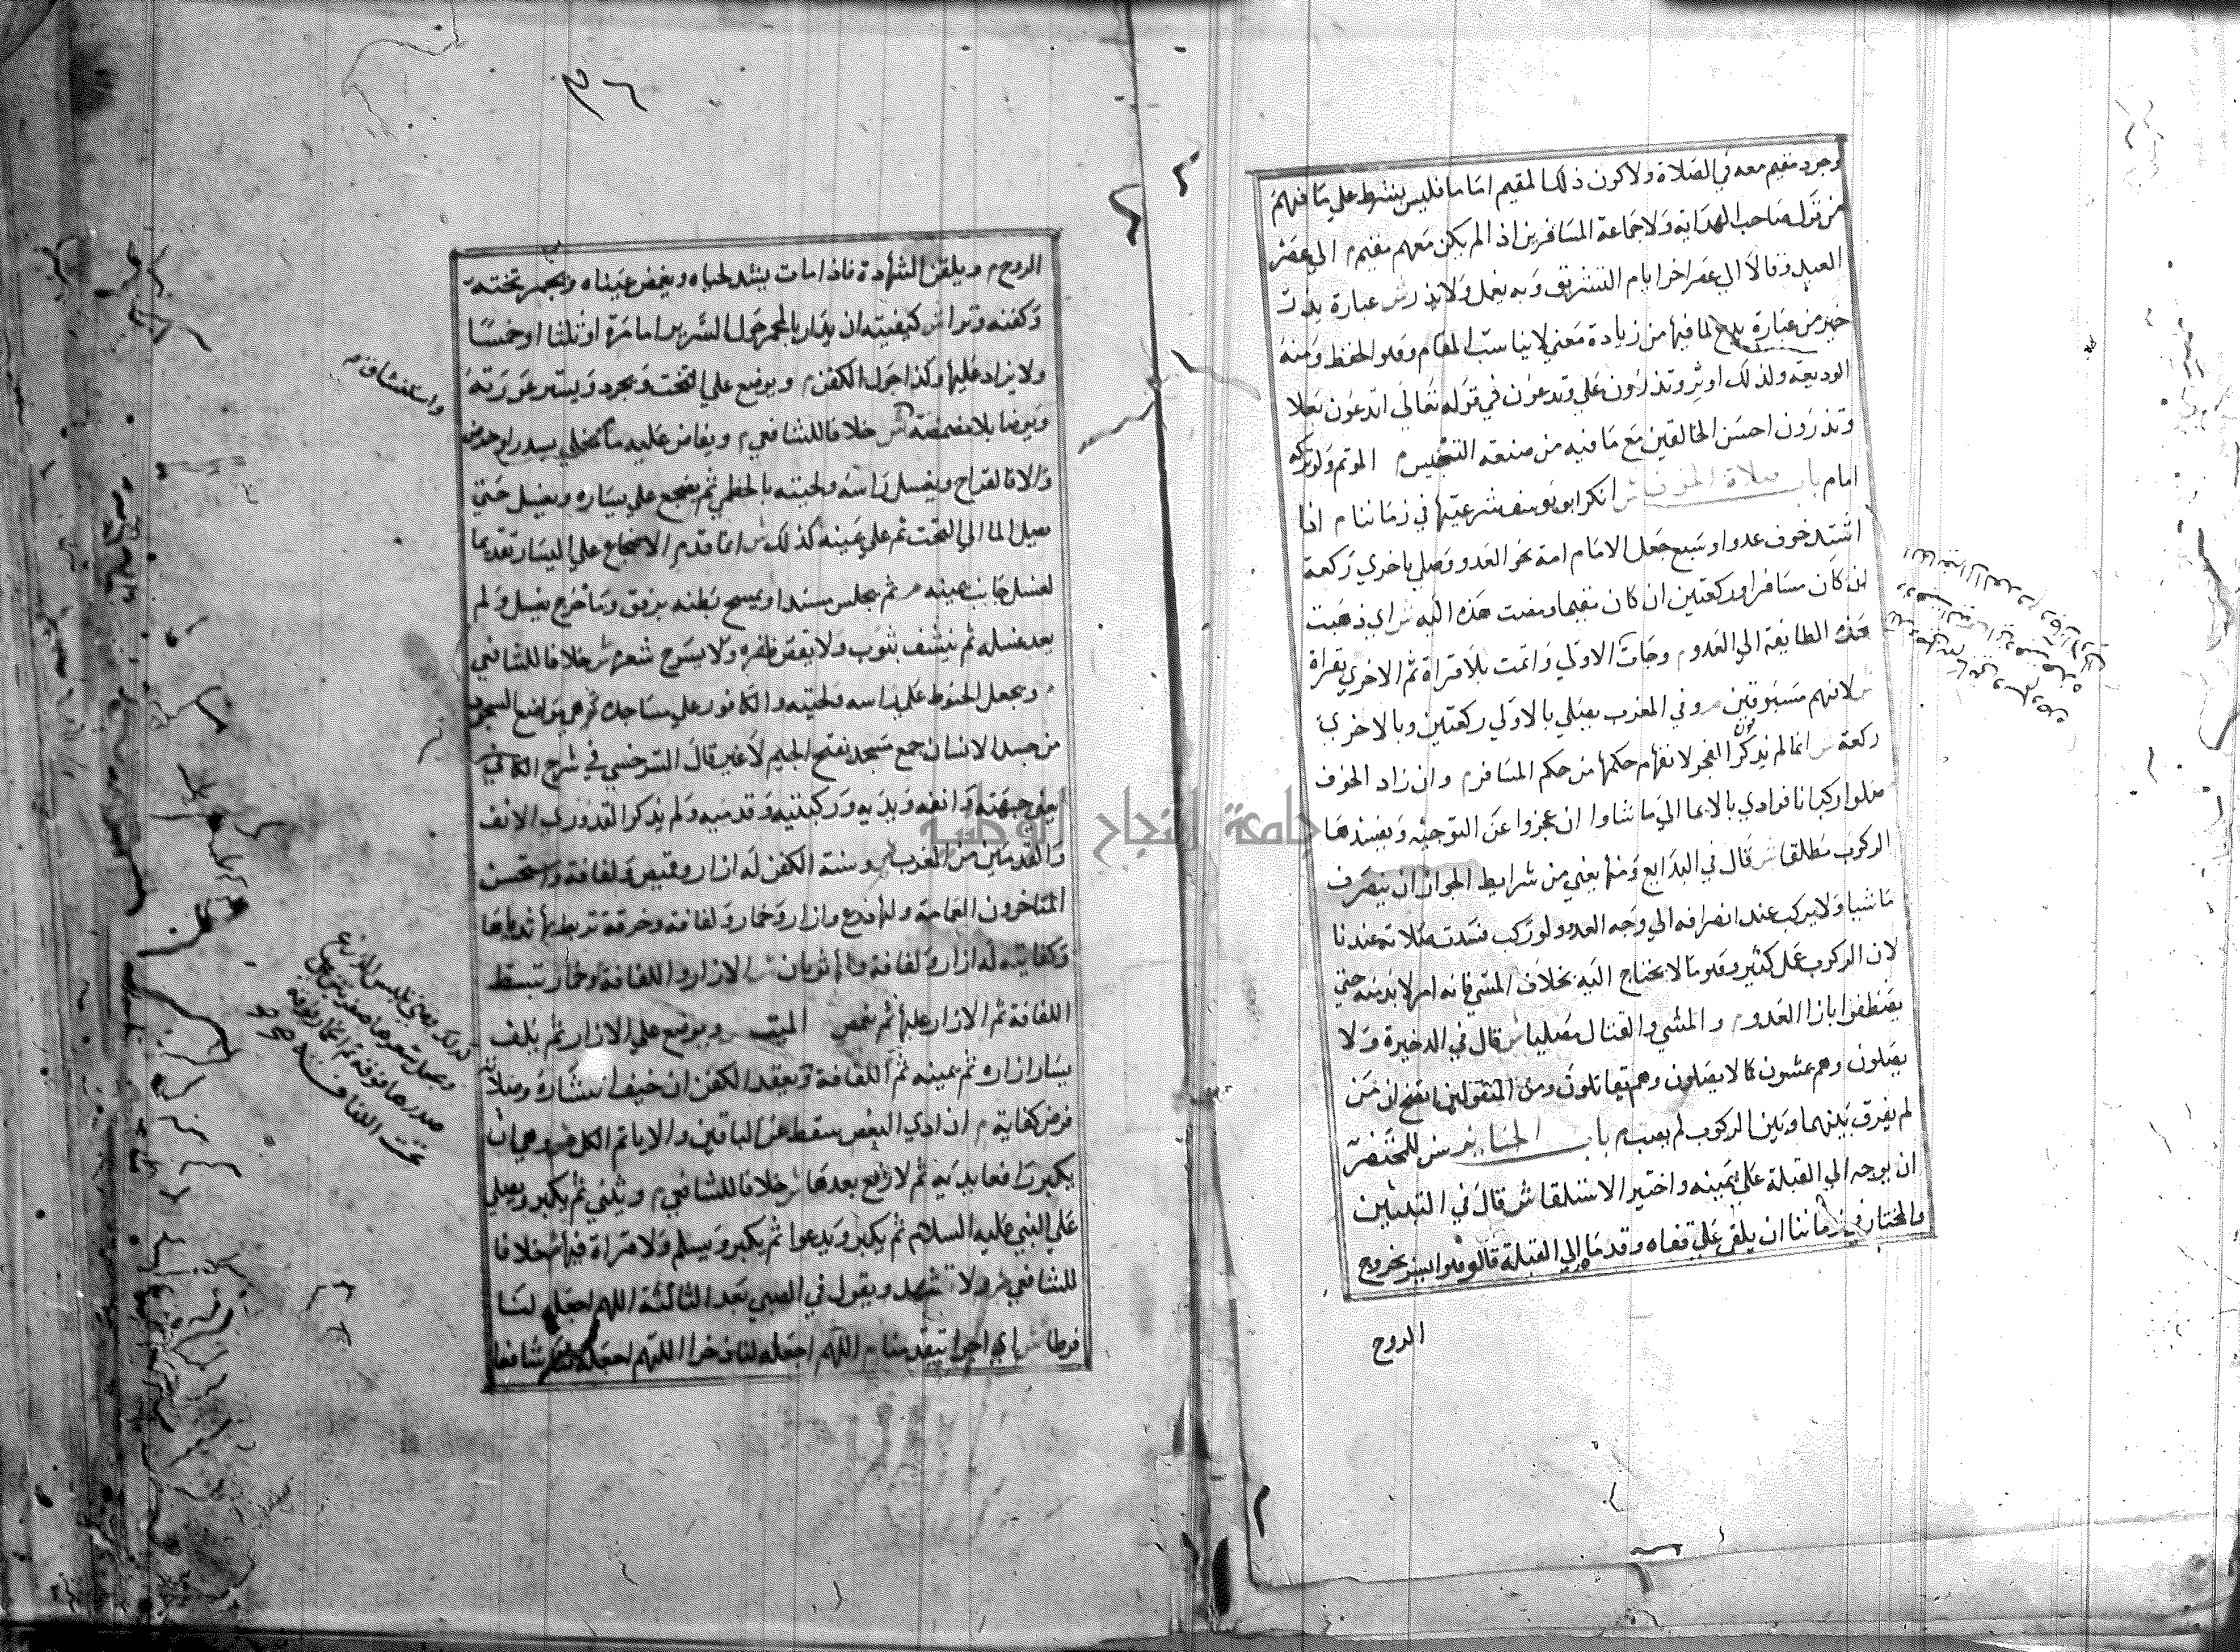 وجود مقيم معه في الصلاة ولا كون ذلك المقيم اماما فليس بشرط علي ما فهم
من قول صاحب الهداية ولا جماعة المسافرين اذا لم يكن معهم مقيم م الي عصر
العيد وقالا الي عصر اخر ايام التشريق وبه يعمل ولا يذر ش عبارة يذر
خير من عبارة يدع لما فيها من زيادة معني لا يناسب المقام وهو الحفظ ومنه
الوديعة ولذلك اوثر وتذرون علي وتدعون في قوله تعالي اتدعون بعلا
وتذرون احسن الخالقين مع ما فيه من صنعة التجنيس م الموتم ولو تركه
امام باب صلاة الخوف ش انكر ابو يوسف شرعيتها في زماننا م اذا
اشتد خوف عدو او سبع جعل الامام امة نحو العدو وصلي باخري ركعة
ان كان مسافرا وركعتين ان كان مقيما ومضت هذه اليه ش اي ذهبت
هذه الطايفة الي العدو م وجات الاولي واتمت بلا قراة ثم الاخري بقراة
ش لانهم مسبوقين م وفي المغرب يصلي بالاولي ركعتين وبالاخري
ركعة ش انما لم يذكر الفجر لانفهام حكمها من حكم المسافر م وان زاد الخوف
صلوا ركبانا فرادي بالايما الي ما شاوا ان عجزوا عن التوجيه ويفسدها
الركوب مطلقا ش قال في البدايع ومنها يعني من شرايط الجواز ان ينصرف
ماشيا ولا يركب عند انصرافه الي وجه العدو ولو ركب فسدت صلاته عندنا
لان الركوب عمل كثير وهو ما لا يحتاج اليه بخلاف المشي فانه امر لا بد منه حتي
يصطفوا بازا العدو م والمشي والقتال مصليا ش قال في الدخيرة ولا
يصلون وهم يمشون كما لا يصلون وهم يقاتلون ومن المنقولين اتضح ان من
لم يفرق بينهما وبين الركوب لم يصب م باب الجنايز سن للمحتضر
ان يوجه الي القبلة علي يمينه واختير الاستلقا ش قال في التبيين
والمختار في زماننا ان يلقي علي قفاه وقدماه الي القبلة قالوا هو ايسر بخروج
الروح
٣٦
الروح م ويلقن الشهادة فاذا مات يشد لحياه ويغمض عيناه ويجمر تخته
وكفنه وترا ش كيفيته ان يدار بالمجمر حول السرير اما مرة او ثلثا او خمسا
ولا يزاد عليها وكذا حول الكفن م ويوضع علي التخت ويجرد ويستر عورته
ويوضا بلا مضمضة ش خلافا للشافعي م ويفاض عليه ما مغلي بسدر او حرض
واستنشاق م
والا فالقراح ويغسل راسه ولحيته بالخطمي ثم يضجع علي يساره ويغسل حتي
يصل الما الي التخت ثم علي يمينه كذلك ش انما قدم الاضجاع علي اليسار تقديما
لغسل جانب يمينه م ثم يجلس مسندا ويمسح بطنه برفق وما خرج يغسل ولم
يعد غسله ثم ينشف بثوب ولا يقص ظفره ولا يسرح شعره ش خلافا للشافعي
م ويجعل الحنوط علي راسه ولحيته والكافور علي مساجده ش هي مواضع السجود
من جسد الانسان جمع مسجد بفتح الجيم لا غير قال السرخسي في شرح الكافي
يعني جبهته وانفه ويديه وركبتيه وقدميه ولم يذكر القدوري الانف
والقدمين من المغرب م وسنة الكفن له ازار وقميص ولفافة واستحسن
المتاخرون العمامة ولها درع وازار وخمار ولفافة وخرقة تربط بها ثدياها
وكفايته له ازار ولفافة ولها ثوبان ش الازار واللفافة وخمار تبسط
اللفافة ثم الازار عليها ثم يقمص الميت ويوضع علي الازار ثم يلف
يسار ازاره ثم يمينه ثم اللفافة ويعقد الكفن ان خيف انتشاره وصلاته
فرض كفاية م ان ادي البعض سقط عن الباقين والا ياثم الكل م وهي ان
يكبر رافعا يديه ثم لا رفع بعدها ش خلافا للشافعي م ويثني ثم يكبر ويصلي
علي النبي عليه السلام ثم يكبر ويدعوا ثم يكبر ويسلم ولا قراة فيها ش خلافا
للشافعي م ولا تشهد ويقول في الصبي بعد الثالثة اللهم اجعله لنا
فرطا ش اي اجرا يتقدمنا م اللهم اجعله لنا ذخرا اللهم اجعله لنا شافعا